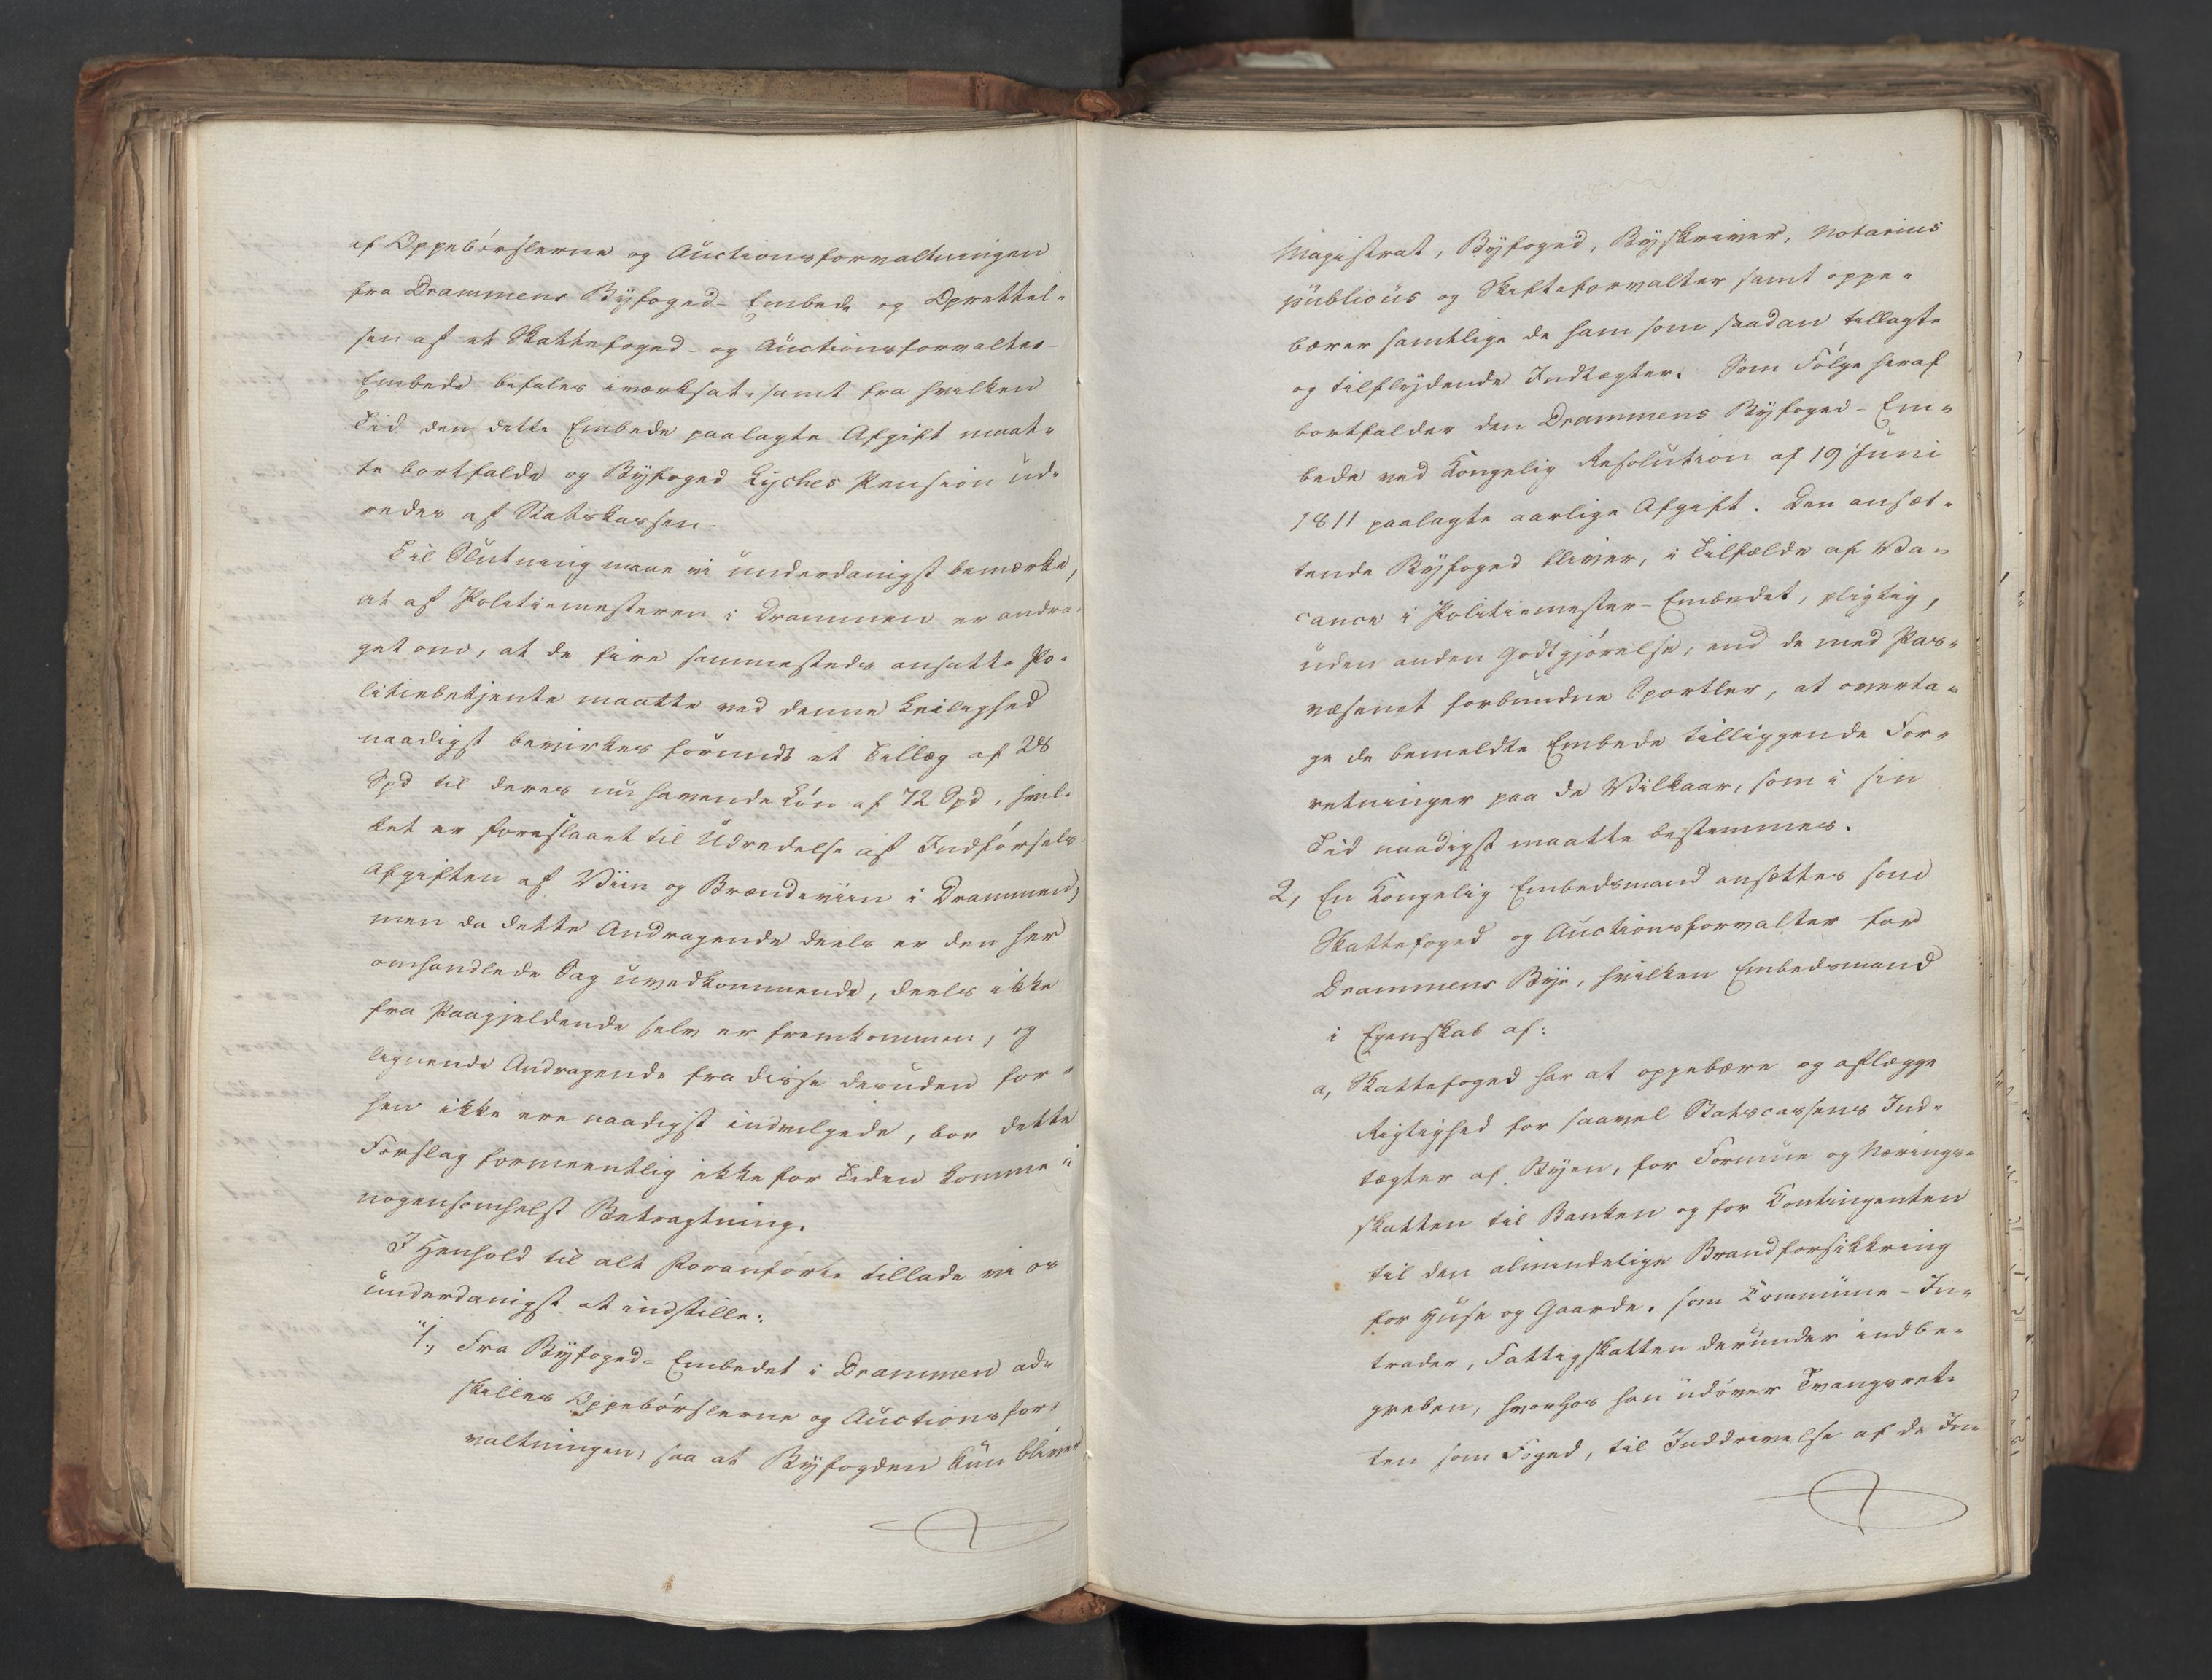 af Oppebørslerne og Auctionsforvaltningen
fra Drammens Byfoged-Embede og Oprettel-
sen af et Skattefoged- og Auctionsforvalter-
Embede befales iværksat, samt fra hvilken
Tid den dette Embede paalagte Afgift maat-
te bortfalde og Byfoged Lyches Pension ud-
redes af Statskassen.
Til Slutning maae vi underdanigst bemærke,
at af Politiemesteren i Drammen er andra-
get om, at de fire sammesteds ansatte Po-
litiebetjente maatte ved denne Leilighed
naadigst bevirkes forundt et Tillæg af 28
Spd til deres nu havende Løn af 72 Spd, hvil-
ket er foreslaaet til Udredelse af Indførsels-
afgiften af Viin og Brændeviin i Drammen,
men da dette Andragende deels er den her
omhandlede Sag uvedkommende, deels ikke
fra Paagjeldende selv er fremkommen, og
lignende Andragende fra disse desuden for-
hen ikke ere naadigst indvilgede, bør dette
Forslag formeentlig ikke for Tiden komme i
nogensomhelst Betragtning.
I Henhold til alt Foranførte tillade vi os
underdanigst at indstille:
"1, Fra Byfoged-Embedet i Drammen ad-
skilles Oppebørslerne og Auctionsfor-
valtningen, saa at Byfogden kun bliver
Magistrat, Byfoged, Byskriver, Notarius
publicus og Skifteforvalter samt oppe-
bærer samtlige de ham som saadan tillagte
og tilflydende Indtægter. Som Følge heraf
bortfalder den Drammens Byfoged-Em-
bede ved Kongelig Resolution af 19 Juni
1811 paalagte aarlige Afgift. Den ansæt-
tende Byfoged bliver, i Tilfælde af Va-
cance i Politiemester-Embedet, pligtig,
uden anden Godtgjørelse, end de med Pas-
væsenet forbundne Sportler, at overta-
ge de bemeldte Embede tilliggende For-
retninger paa de Vilkaar, som i sin
Tid naadigst maatte bestemmes.
2, En Kongelig Embedsmand ansættes som
Skattefoged og Auctionsforvalter for
Drammens Bye, hvilken Embedsmand
i Egenskab af:
a, Skattefoged har at oppebære og aflægge
Rigtighed for saavel Statscassens Ind-
tægter af Byen, for Formue og Nærings-
skatten til Banken og for Contingenten
til den almindelige Brandforsikkring
for Huse og Gaarde, som Commune-In-
trader, Fattigskatten derunder indbe-
greben, hvorhos han udøver Tvangsret-
ten som Foged, til Inddrivelse af de In-